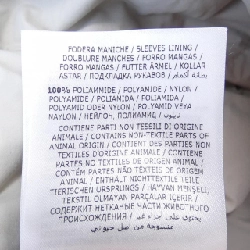 FODERA MANICHE / SLEEVES LINING /
DOUBLURE MANCHES / FORRO MANGAS /
FORRO MANGAS / FUTTER ÄRMEL / KOLLAR
ASTAR / ПОДКЛАДКА РУКАВОВ /
100% POLIAMMIDE / POLYAMIDE / NYLON /
POLYAMIDE / POLIAMIDA /
POLYAMID ODER NYLON / POLYAMID VEYA
NAYLON / НЕЙЛОН, ПОЛИАМИД /
CONTIENE PARTI NON TESSILI DI ORIGINE
ANIMALE / CONTAINS NON-TEXTILE PARTS OF
ANIMAL ORIGIN / CONTIENT DES PARTIES NON
TEXTILES D'ORIGINE ANIMALE / CONTIENE
PARTES NO TEXTILES DE ORIGEN ANIMAL /
CONTÉM PARTES NÃO TÊXTEIS DE ORIGEM
ANIMAL / ENTHÄLT NICHTTEXTILE TEILE
TIERISCHEN URSPRUNGS / HAYVAN MENŞELİ
TEKSTİL OLMAYAN PARÇALAR İÇERİR /
СОДЕРЖИТ НЕТКАНЫЕ ЧАСТИ ЖИВОТНОГО
ПРОИСХОЖДЕНИЯ /